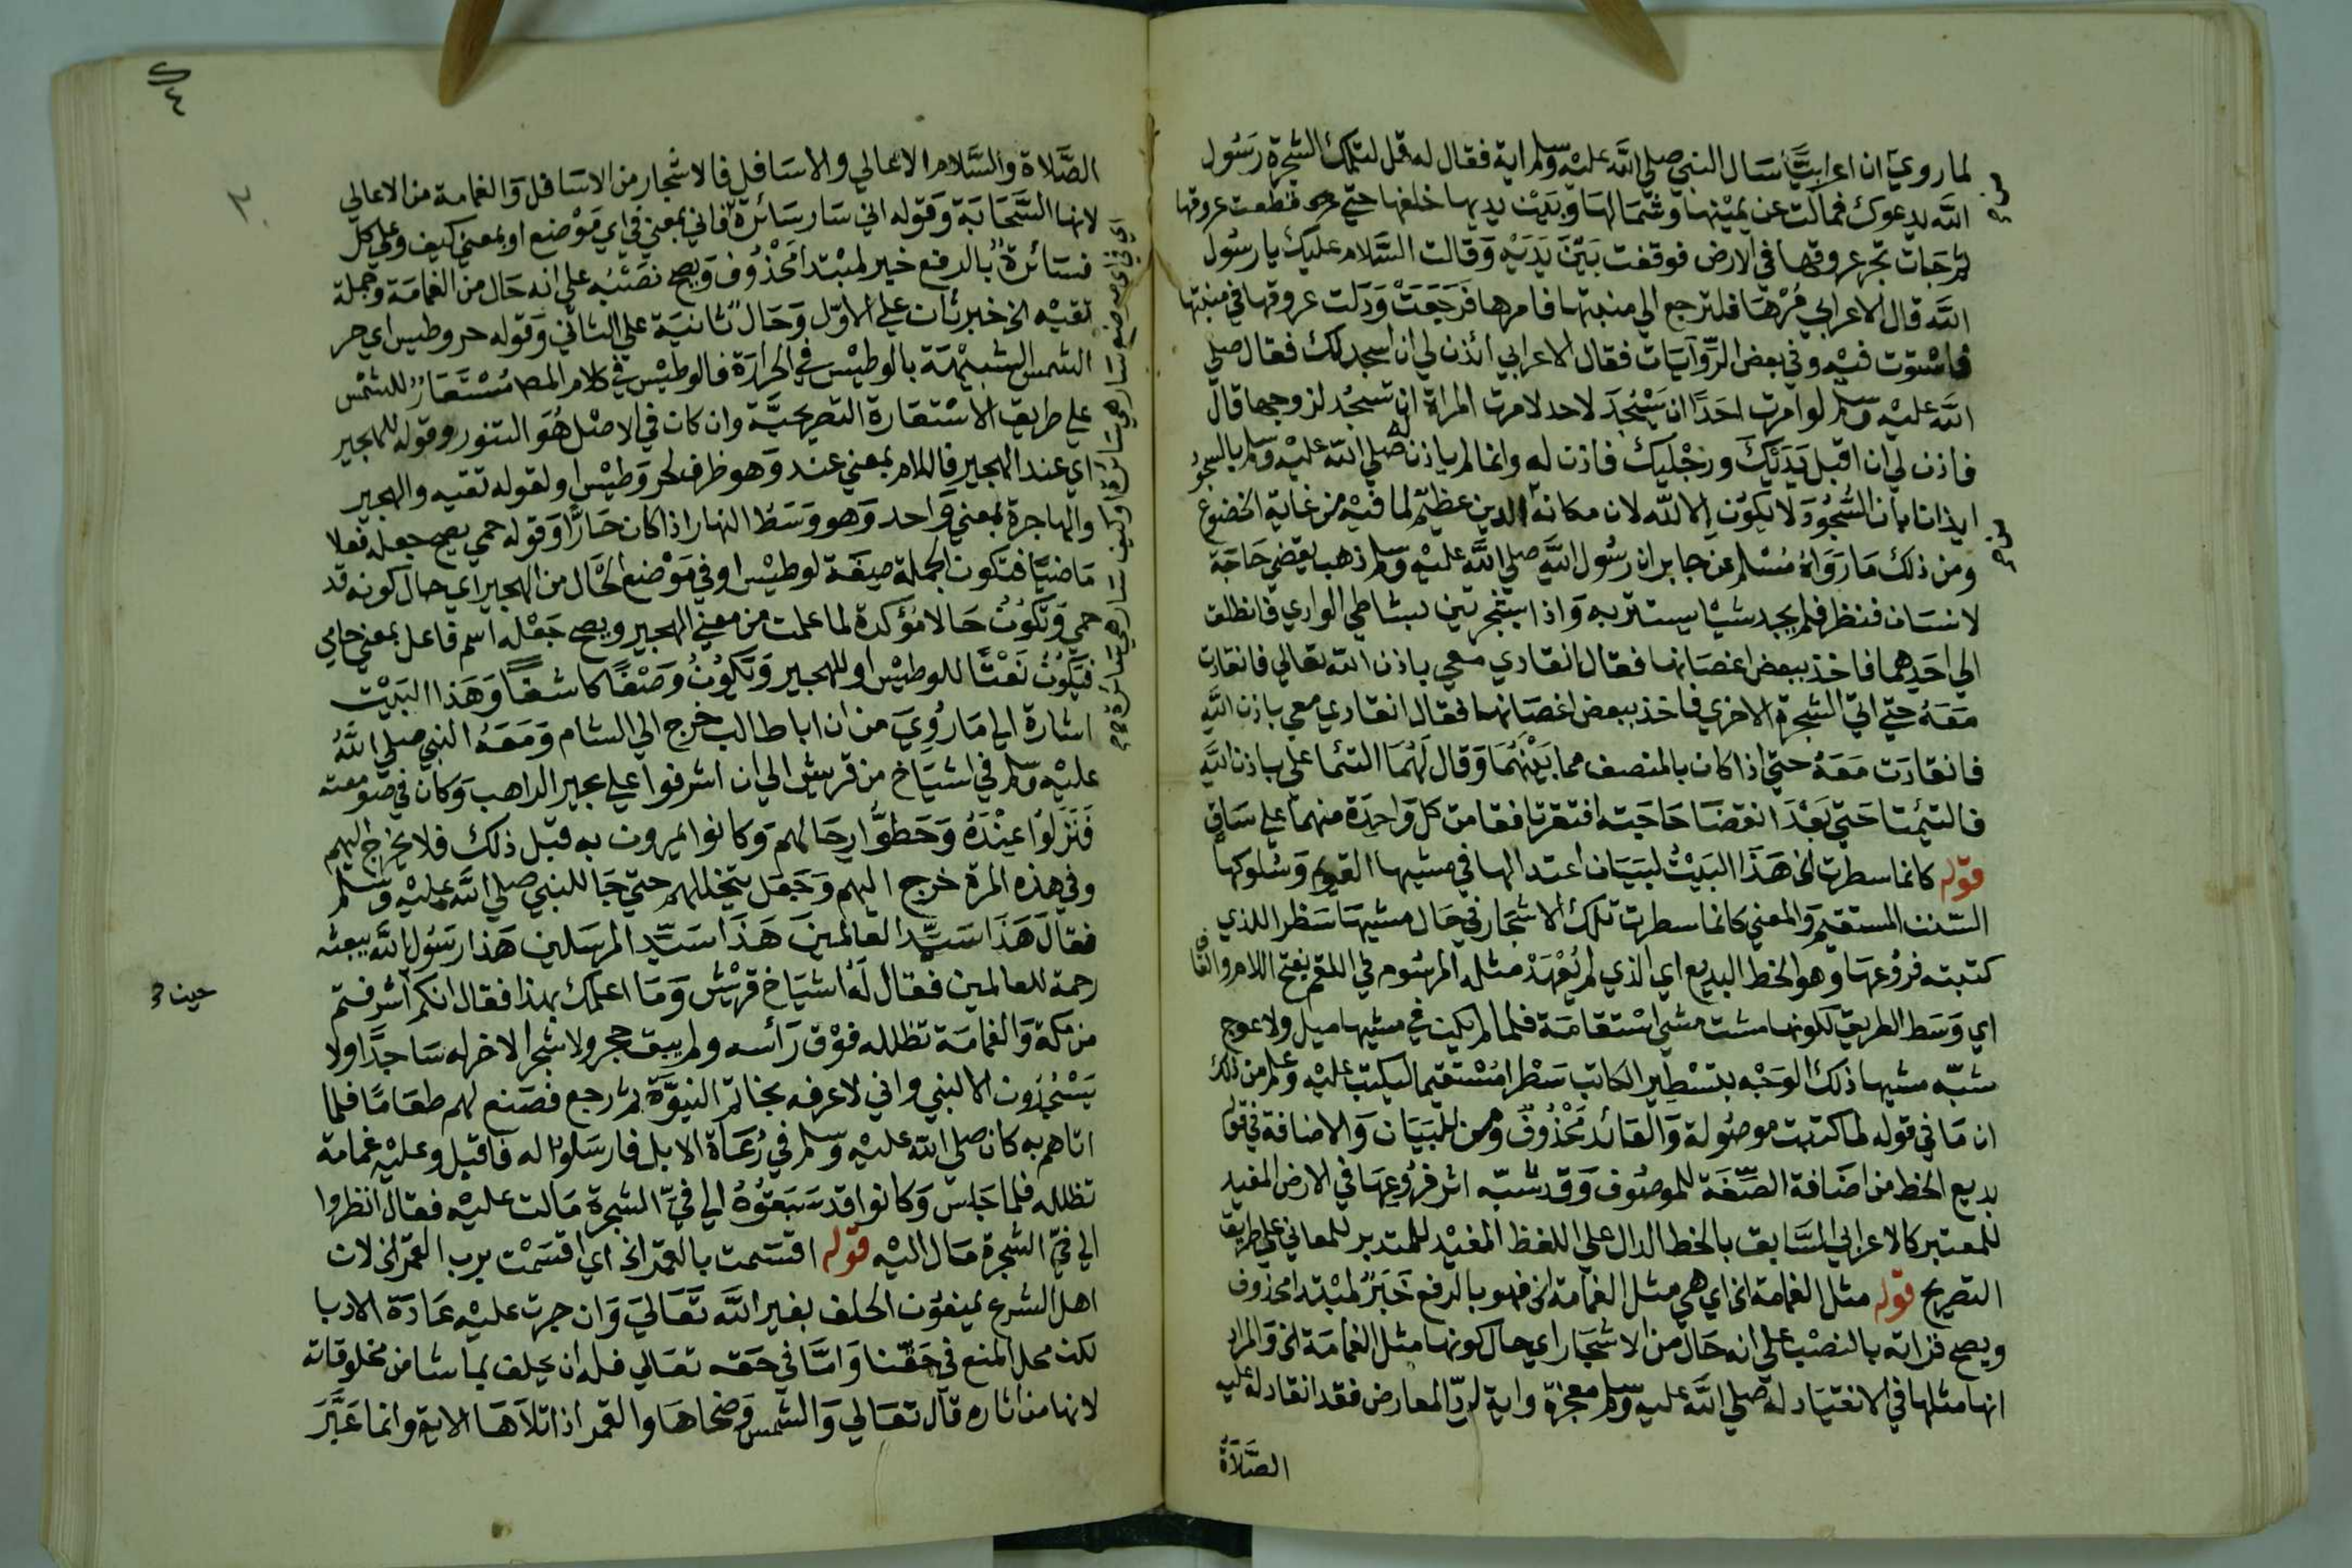 لما روي ان اعرابيًّا سَال النبي صلي الله عليه وسلم اية فقال له قل لتلك الشجرة رَسُول
الله يدعوك فمالت عن يمينها وشمالها وبَيْن يديها خلفها حتي قطعت عروقها
ثم جات تجر عروقها في الارض فوقفت بَيْنَ يَدَيْه وَقالت السَّلام عليك يا رسُول
الله قال الاعرابي مُرْهَا فلترجع الي منبتها فامرها فَرَجَعَتْ وَدَلت عروقها في منبتها
فاستوت فيْه وفي بعض الرِّوايَات فقال الاعرابي ائذن لي ان اسجد لك فقال صلي
الله عليْه وسلم لو امرت احَدًا ان يَسْجُدَ لاحد لامرت المراة ان تسجُد لزوجها قال
فاذن لي ان اقبل يَدَيْكَ ورجْليك فاذن له وانما لم ياذن له صلي الله عليْه وسلم بالسجود
ايذانا بان السُّجُودَ لا يكوُن الا لله لان مكانه الدين عظيْم لما فيْه من غاية الخضوع
ومن ذلك مَا رَوَاهُ مُسْلم عن جابر ان رسُول الله صلي الله عليْه وسلم ذهب يقضي حَاجَة
لانسَان فنظر فلم يجد شيْا يستتر به وَاذا بشجرتين بشاطي الوادي فانطلق
الي احَدِهما فاخذ ببعض اغصَانها فقال انقادي معي باذن الله تعالي فانقادت
مَعَهُ حتي اتي الشجرة الاخري فاخذ ببعض اغصَانها فقال انقادي معي باذن الله
فانقادَت مَعَهُ حتي اذا كان بالمنصف مما بَيْنهُمَا وَقال لَهُمَا التئما علي باذن الله
فالتيمتا حَتي بَعْدَ انقضَا حَاجَته افترقتا فقامت كل وَاحِدَة منهما علي سَاق
قوله كانما سطرت الخ هَذَا البَيْتُ لبَيَان اعتدالها في مشيها القويم وَسُلوكها
السّنن المستقيم وَالمعني كانما سطرت تلك الاشجَار في حَال مشيهَا سَطرا للذي
كتبته فروُعهَا وهو الخط البديع اي الذي لم يُعْهَدْ مثله المرسُوم في اللقم بفتح اللام والقاف
اي وَسَط الطريق لكونها مشت مشي استقامَة فلما لم يكن في مشيها ميل ولا عوج
شبّه مشيها ذلك الوَجْه بتسْطير الكاتب سَطْرا مُسْتقيما ليكتب عليْه وعلم من ذلك
ان مَا في قوله لما كتبت موصُولة وَالعَائد مَحْذُوف ومن للبَيَان وَالاضافة في قوله
بديع الخط من اضَافة الصِّفَة للموصُوف وَقد شبّه اثر فرُوُعِهَا في الارض المفيد
للمعتبر كالاعرابي السَّابق بالخط الدال علي اللفظ المفيْد للمتدبر للمعاني علي طريق
التصريح قوله مثل الغمامة الخ اي هي مثل الغمامَة الخ فهو بالرفع خَبَرُ لمبْتدا محذوف
ويصح قراته بالنصْب علي انه حَال من الاشجَار اي حال كونها مثل الغمامَة الخ وَالمراد
انها مثلها في الانقيَاد له صلي الله عليه وسلم معجزة واية لردّ المعارض فقد انقاد له عليه
الصَّلَاة
الصَّلاة والسَّلام الاعالي والاسَافل فالاشجار من الاسَافل وَالغمامة من الاعالي
لانها السَّحَابَة وَقوله اني سَار سَائرة فاني بمعني في اي مَوْضع او بمعني كيف وعلي كل
فسَائرة بالرفع خبر لمبْتدا محْذوُف وَيصح نصَبُه علي انه حَال من الغمامَة وجملة
تقيْه الخ خبر ثان علي الاوّل وَحَال ثانيَة علي الثاني وَقوله حر وطيس اي حر
الشمس الشبيْهة بالوطيْس في الحرارَة فالوطيْس في كلام المص مُسْتَعَار للشمْس
علي طريق الاسْتعَارة التصريحيَّة وان كان في الاصْل هُوَ التنور وقوله للهجير
اي عند الهجير فاللام بمعني عند وَهو ظرف لحر وَطيْس او لقوله تقيه والهجير
والهاجرة بمعني وَاحد وَهو وَسَط النهار اذا كان حَارًّا وَقوله حمي يصح جعله فعلا
مَاضيًا فتكون الجملة صِفَة لوطيْس او في مَوْضع الحَال من الهجير اي حال كونه قد
حمي وَتكوُنُ حَالا مُؤكدة لما علمت من معني الهجير ويصح جَعْله اسم فاعل بمعني حامي
فيَكُونُ نَعْتًا للوطيْس او للهجير وَيَكوُنُ وَصْفًا كاشفًا وَهَذا البَيْت
اشارة الي مَا رُوِيَ من ان ابا طالب خرج الي الشام وَمَعَهُ النبي صلي الله
عليْه وسلم في اشيَاخ من قريش الي ان اشرفوا علي بحير الراهب وَكان في صومعته
فَنَزَلوُا عِنْدَهُ وَحَطوُّا رحَالهم وَكانوا يمرون به قبل ذلك فلا يخرج اليهم
وفي هذه المرة خرج اليهم وَجَعَل يتخللهم حتي جَا للنبي صلي الله عليْه وسلم
فقالَ هَذَا سَيّد العالمينَ هَذَا سَيِّد المرسَلين هَذا رَسُول الله يبعثه
رحمة للعالمين فقال لَهُ اشيَاخ قريْش وَمَا اعلمك بهذا فقال انكم اشرفتم
حين
من مكة وَالغمامَة تظلله فوْق رَأسه ولم يبق حجر ولا شجر الا خر له سَاجدًا ولا
يَسْجُدُون الا لنبي واني لاعرفه بخاتم النبوَّة ثم رجع فصَنع لهم طعَامًا فلما
اتاهم به كان صلي الله عليْه وسلم في رُعَاة الابل فارسَلوُا له فاقبل وعليْه غمامَة
تظلله فلما جَلسَ وَكانوا قد سَبَقوُهُ الي فيّ الشجرة مَالت عليْه فقال انظروا
الي فيّ الشجرة مَال اليْه قوله اقسَمت بالقمر الخ اي اقسَمْت برب القمر الخ لان
اهل الشرع يمنعوُن الحلف بغير الله تَعَاليَ وَان جرت عليْه عَادَة الادبا
لكن محل المنع في حَقّنا وَامَّا في حَقه تعَالي فله ان يحلف بما شا من مخلوقاته
لانها من اثاره قال تعَالي وَالشمس وَضحاهَا والقمر اذا تلَاهَا الاية وانما عَبَّرَ